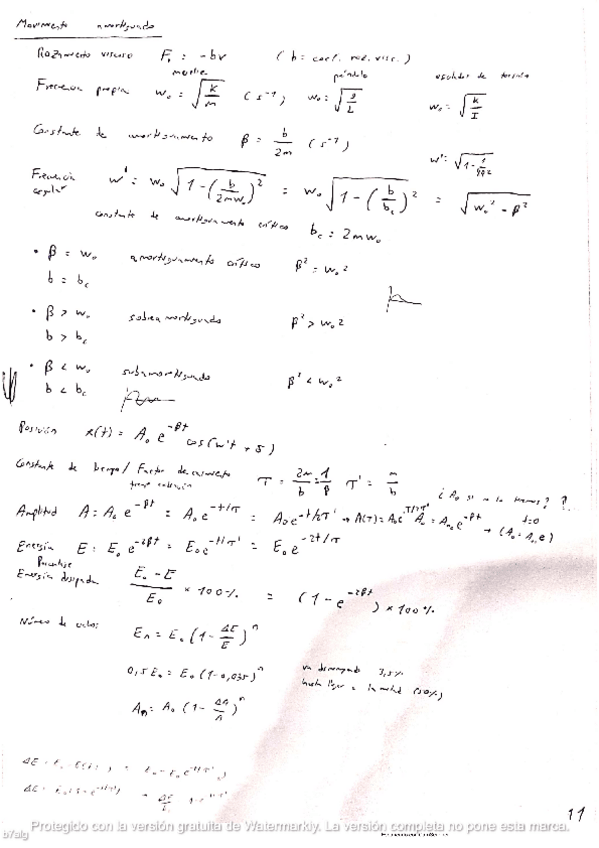 Movimiento amortiguado
Rozamiento viscoso F_r = -bv (b = coef. roz. visc.)
muelle péndulo oscilador de torsión
Frecuencia propia w₀ = √(k/m) (s⁻¹) w₀ = √(g/L) w₀ = √(k/I)
Constante de amortiguamiento β = b/2m (s⁻¹)
Frecuencia angular w' = w₀ √(1-(b/2mw₀)²) = w₀ √(1-(b/b_c)²) = √(w₀² - β²)
constante de amortiguamiento crítico b_c = 2mw₀
• β = w₀ amortiguamiento crítico β² = w₀²
b = b_c
• β > w₀ sobreamortiguado β² > w₀²
b > b_c
• β < w₀ subamortiguado β² < w₀²
b < b_c
Posición x(t) = A₀ e^(-βt) cos(w't + δ)
Constante de tiempo / Factor de τ = 2m/b = 1/β τ' = m/b
¿A₀ si no la tenemos?
Amplitud A = A₀ e^(-βt) = A₀ e^(-t/τ) = A₀ e^(-t/2τ')
Energía E = E₀ e^(-2βt) = E₀ e^(-t/τ') = E₀ e^(-2t/τ)
Porcentaje
Energía disipada (E₀ - E)/E₀ × 100% = (1 - e^(-2βt)) × 100%
Número de ciclos E_n = E₀ (1 - ΔE/E)ⁿ
0,5E₀ = E₀ (1-0,035)ⁿ 3,5%
hasta llegar a la mitad (50%)
A_n = A₀ (1 - ΔA/A)ⁿ
11
Protegido con la versión gratuita de Watermarkly. La versión completa no pone esta marca.
b7alg